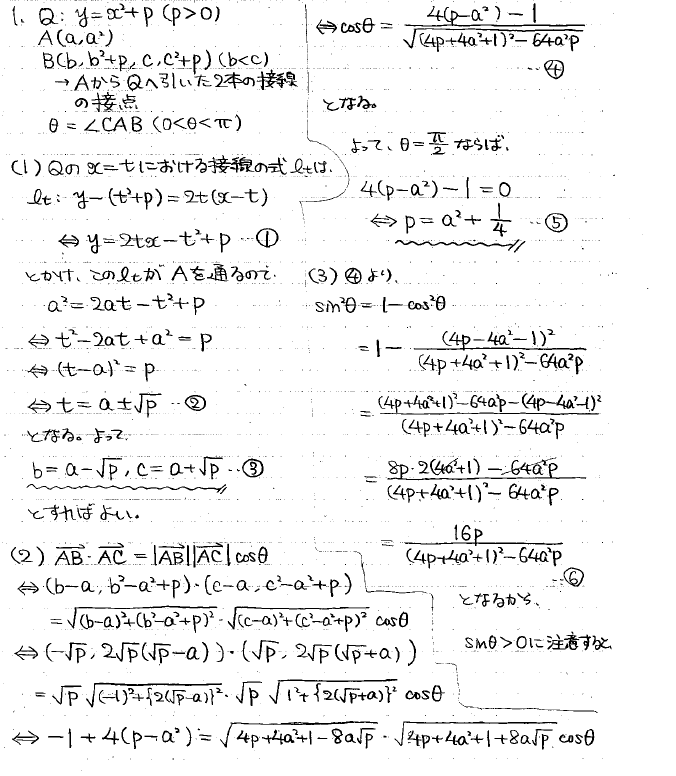 1. Q: y=x²+p (p>0)
A(a,a²)
B(b, b²+p, C, C²+p) (b<c)
→AからQへ引いた2本の接線
の接点
θ=∠CAB (0<θ<π)
(1) Qのx=tにおける接線の式 lₜは、
lₜ: y-(t²+p)=2t(x-t)
⇔ y=2tx-t²+p …①
とかけ、このlₜがAを通るので、
a²=2at-t²+p
⇔ t²-2at+a²=p
⇔ (t-a)²=p
⇔ t=a±√p …②
となる。よって、
b=a-√p, c=a+√p …③
とすればよい。
(2) AB·AC=|AB||AC|cosθ
⇔ (b-a, b²-a²+p)·(c-a, c²-a²+p)
=√((b-a)²+(b²-a²+p)²)·√((c-a)²+(c²-a²+p)²) cosθ
⇔ (-√p, 2√p(√p-a))·(√p, 2√p(√p+a))
=√p√((-1)²+{2(√p-a)}²)·√p√(1²+{2(√p+a)}²) cosθ
⇔ -1+4(p-a²)=√(4p+4a²+1-8a√p)·√(4p+4a²+1+8a√p) cosθ
⇔ cosθ=(4(p-a²)-1)/√((4p+4a²+1)²-64a²p)
…④
となる。
よって、θ=π/2 ならば、
4(p-a²)-1=0
⇔ p=a²+1/4 …⑤
(3) ④より、
sin²θ=1-cos²θ
=1-(4p-4a²-1)²/((4p+4a²+1)²-64a²p)
=((4p+4a²+1)²-64a²p-(4p-4a²-1)²)/((4p+4a²+1)²-64a²p)
=(8p·2(4a²+1)-64a²p)/((4p+4a²+1)²-64a²p)
=16p/((4p+4a²+1)²-64a²p)
…⑥
となるから、
sinθ>0に注意すると